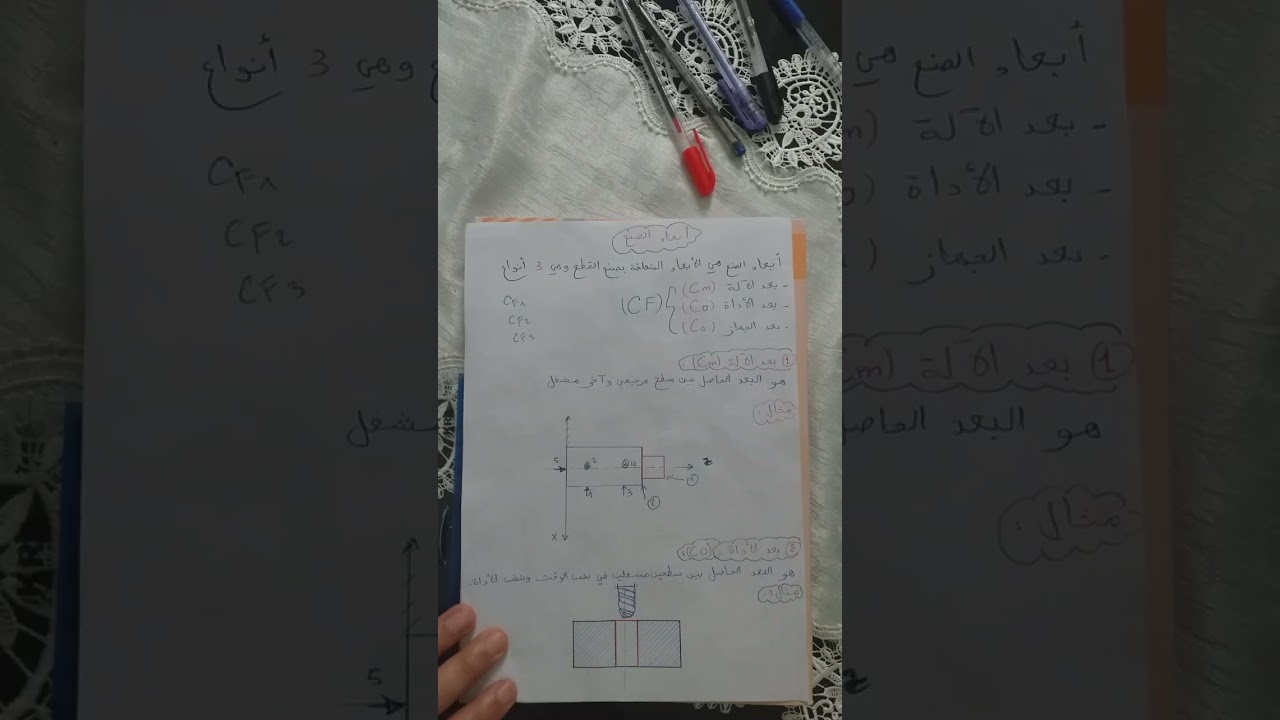 أبعاد الصنع
أبعاد الصنع هي الأبعاد المتعلقة بصنع القطع وهي 3 أنواع
- بعد الآلة (Cm)
- بعد الأداة (Co)
- بعد الجهاز (Ca)
(CF)
CF1
CF2
CF3
1) بعد الآلة (Cm):
هو البعد الحاصل بين سطح مرجعي وآخر مشغل
مثال:
5 2 4 Z
1 3 1
2
X
2) بعد الأداة (Co):
هو البعد الحاصل بين سطحين مشغلين في نفس الوقت وبنفس الأداة
مثال 1: